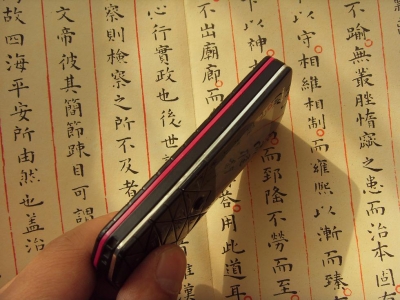 不踰無叢脞惰窳之患而治本固有
以守相維相制而雍熙以漸而臻
以神而郅隆不勞而至
不出廟廊而用此道耳
心行實政也後世
察則檢察之所不及者
文帝彼其簡節疎目可謂
故四海平安所由然也蓋治